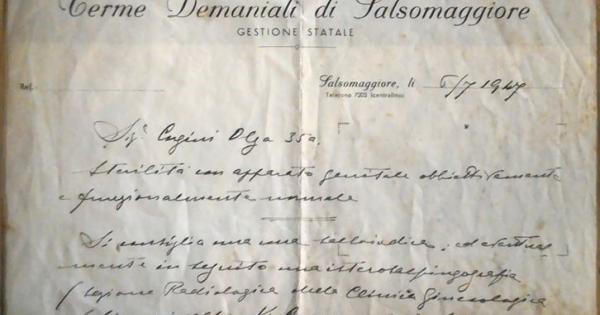 Terme Demaniali di Salsomaggiore
GESTIONE STATALE
Ref.
Salsomaggiore, li 5/7 1947
Telefono 7203 (centralino)
Sig.ª Cugini Olga 35 a.
Sterilità con apparato genitale obbiettivamente
e funzionalmente normale
Si consiglia una cura salsoiodica, ed eventual
mente in seguito una isterosalpingografia
(Sezione Radiologica della Clinica Ginecologica